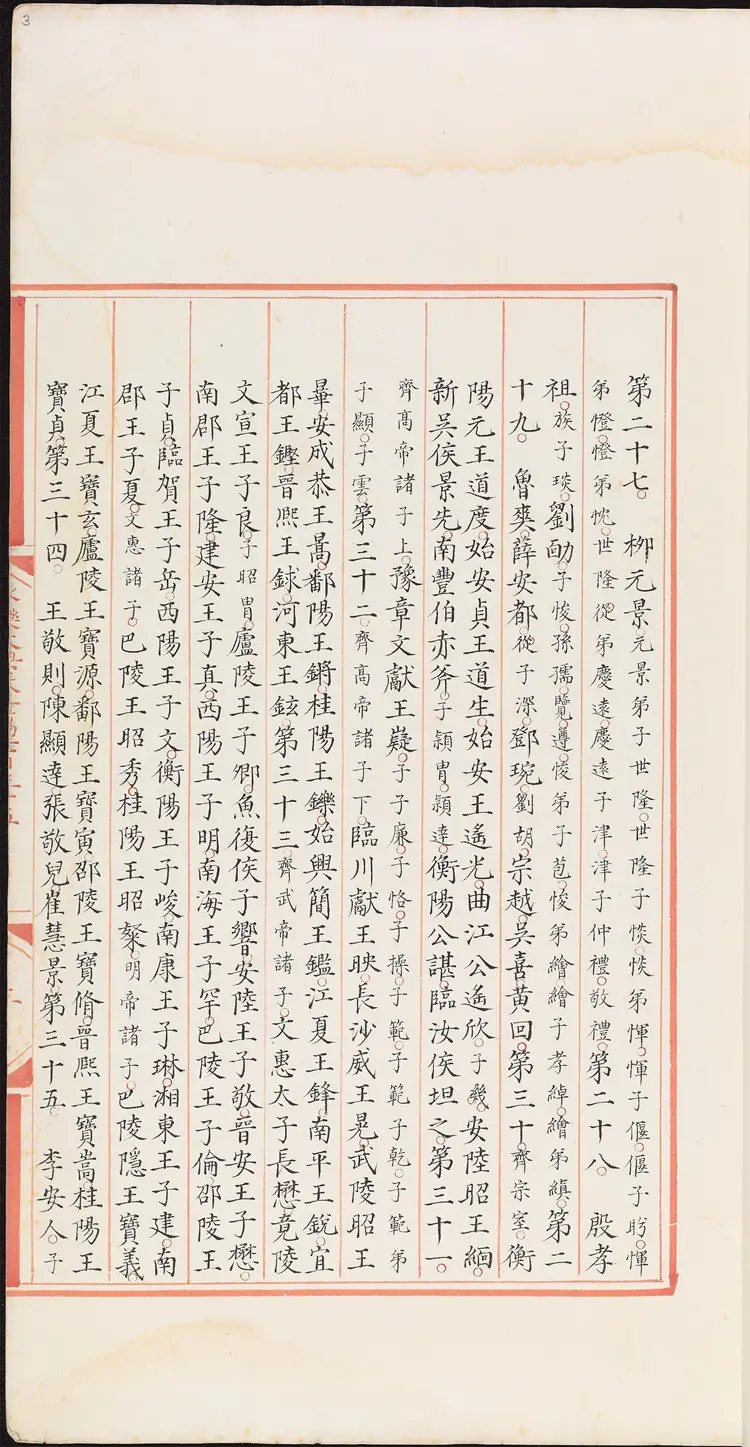 3
第二十七。柳元景。元景弟子世隆。世隆子惔。惔弟惲。惲子偃。偃子盻。惲
弟憕。憕弟忱。世隆從弟慶遠。慶遠子津。津子仲禮。敬禮。第二十八。殷孝
祖。族子琰。劉勔。子悛。孫孺。覽。遵。悛弟子苞。悛弟繪。繪子孝綽。繪弟縝。第二
十九。魯爽。薛安都。從子深。鄧琬。劉胡。宗越。吳喜。黃回。第三十。齊宗室。衡
陽元王道度。始安貞王道生。始安王遙光。曲江公遙欣。子幾。安陸昭王緬。
新吳侯景先。南豐伯赤斧。子穎胄。穎達。衡陽公諶。臨汝侯坦之。第三十一。
齊高帝諸子上。豫章文獻王嶷。子子廉。子恪。子操。子範。子範子乾。子範弟
子顯。子雲。第三十二。齊高帝諸子下。臨川獻王映。長沙威王晃。武陵昭王
曅。安成恭王暠。鄱陽王鏘。桂陽王鑠。始興簡王鑑。江夏王鋒。南平王銳。宜
都王鏗。晉熙王銶。河東王鉉。第三十三。齊武帝諸子。文惠太子長懋。竟陵
文宣王子良。子昭胄。廬陵王子卿。魚復侯子響。安陸王子敬。晉安王子懋。
南郡王子隆。建安王子真。西陽王子明。南海王子罕。巴陵王子倫。邵陵王
子貞。臨賀王子岳。西陽王子文。衡陽王子峻。南康王子琳。湘東王子建。南
郡王子夏。文惠諸子。巴陵王昭秀。桂陽王昭粲。明帝諸子。巴陵隱王寶義。
江夏王寶玄。廬陵王寶源。鄱陽王寶寅。邵陵王寶脩。晉熙王寶嵩。桂陽王
寶貞。第三十四。王敬則。陳顯達。張敬兒。崔慧景。第三十五。李安人。子